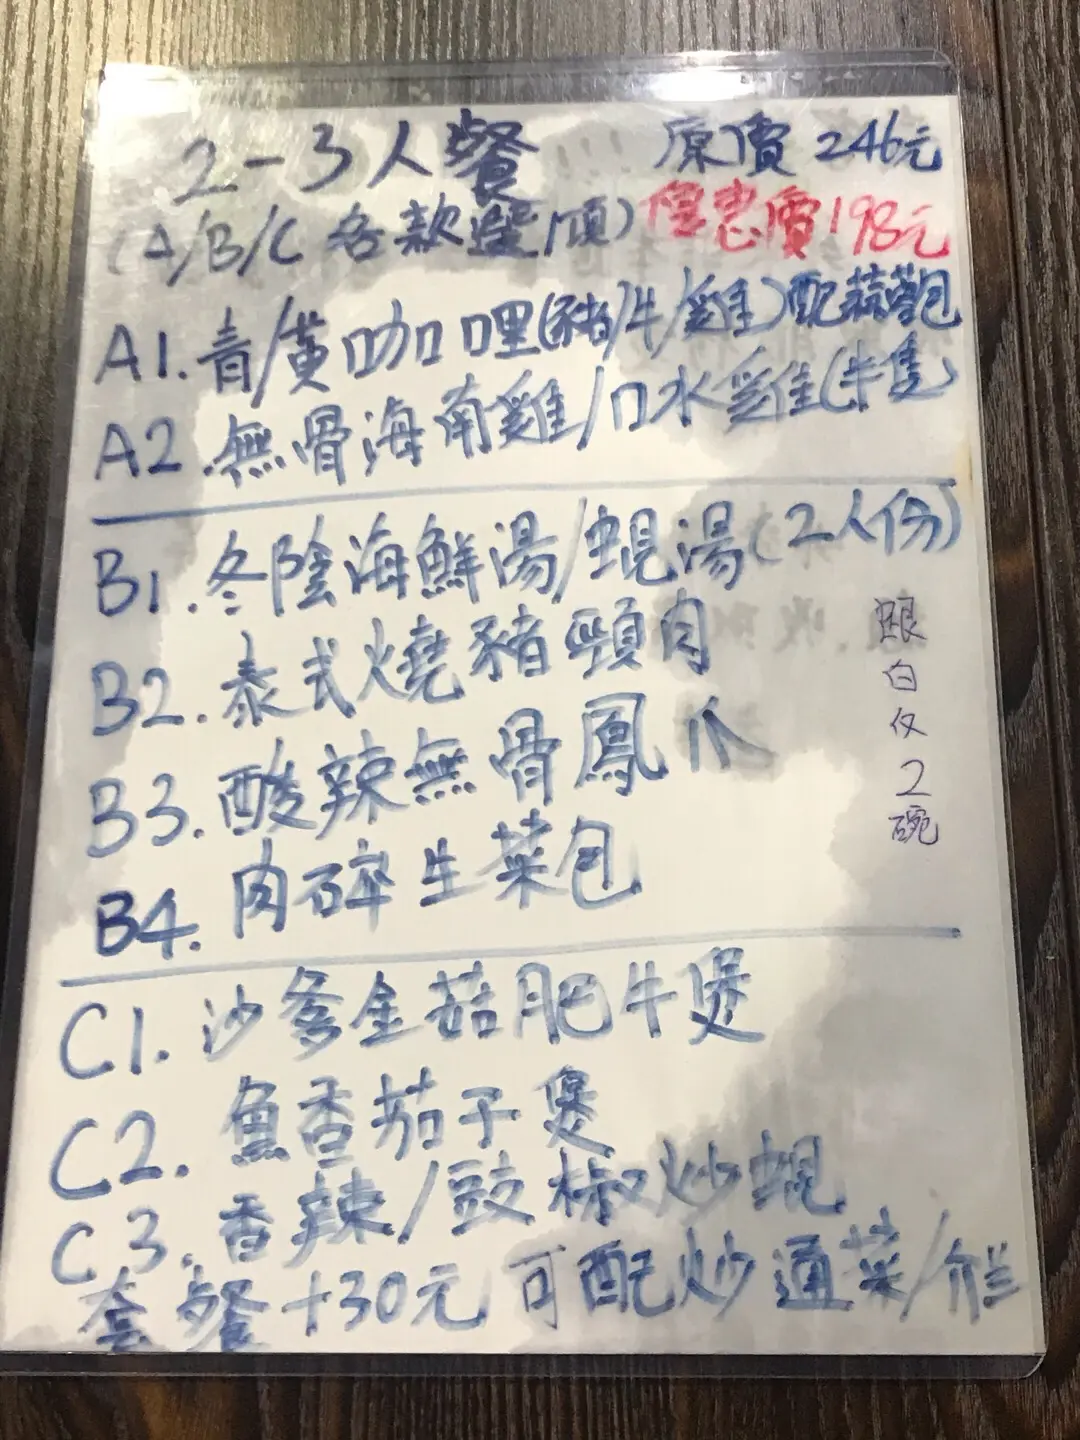 2-3人餐 原價 246元
(A/B/C 各款選1項) 優惠價198元
A1.青/黃咖哩(豬/牛/雞)配蒜蓉包
A2.無骨海南雞/口水雞(半隻
B1.冬陰海鮮湯/蜆湯(2人份)
B2.泰式燒豬頸肉
B3.酸辣無骨鳳爪
B4.肉碎生菜包
跟白仮2碗
C1.沙爹金菇肥牛煲
C2.魚香茄子煲
C.3.香辣/豉椒炒蜆
套餐+30元可配炒通菜/介兰